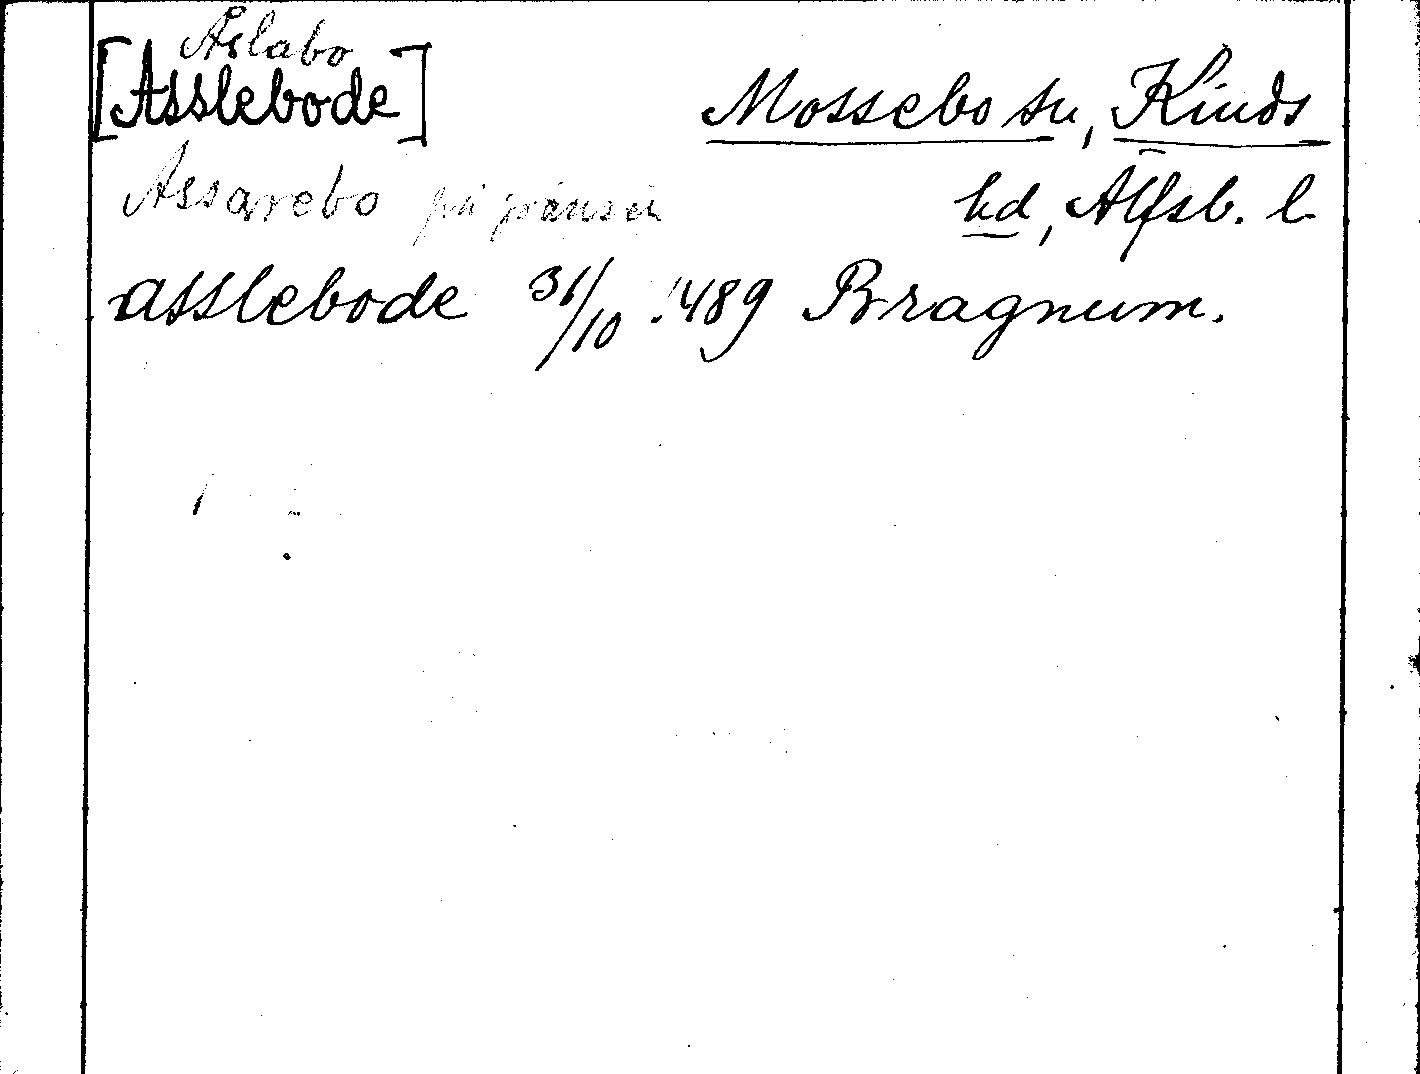 Åslabo
[Asslebode] Mossebo sn, Kinds
Assarebo på gränsen hd, Älfsb. l
asslebode 31/10 1489 Bragnum.